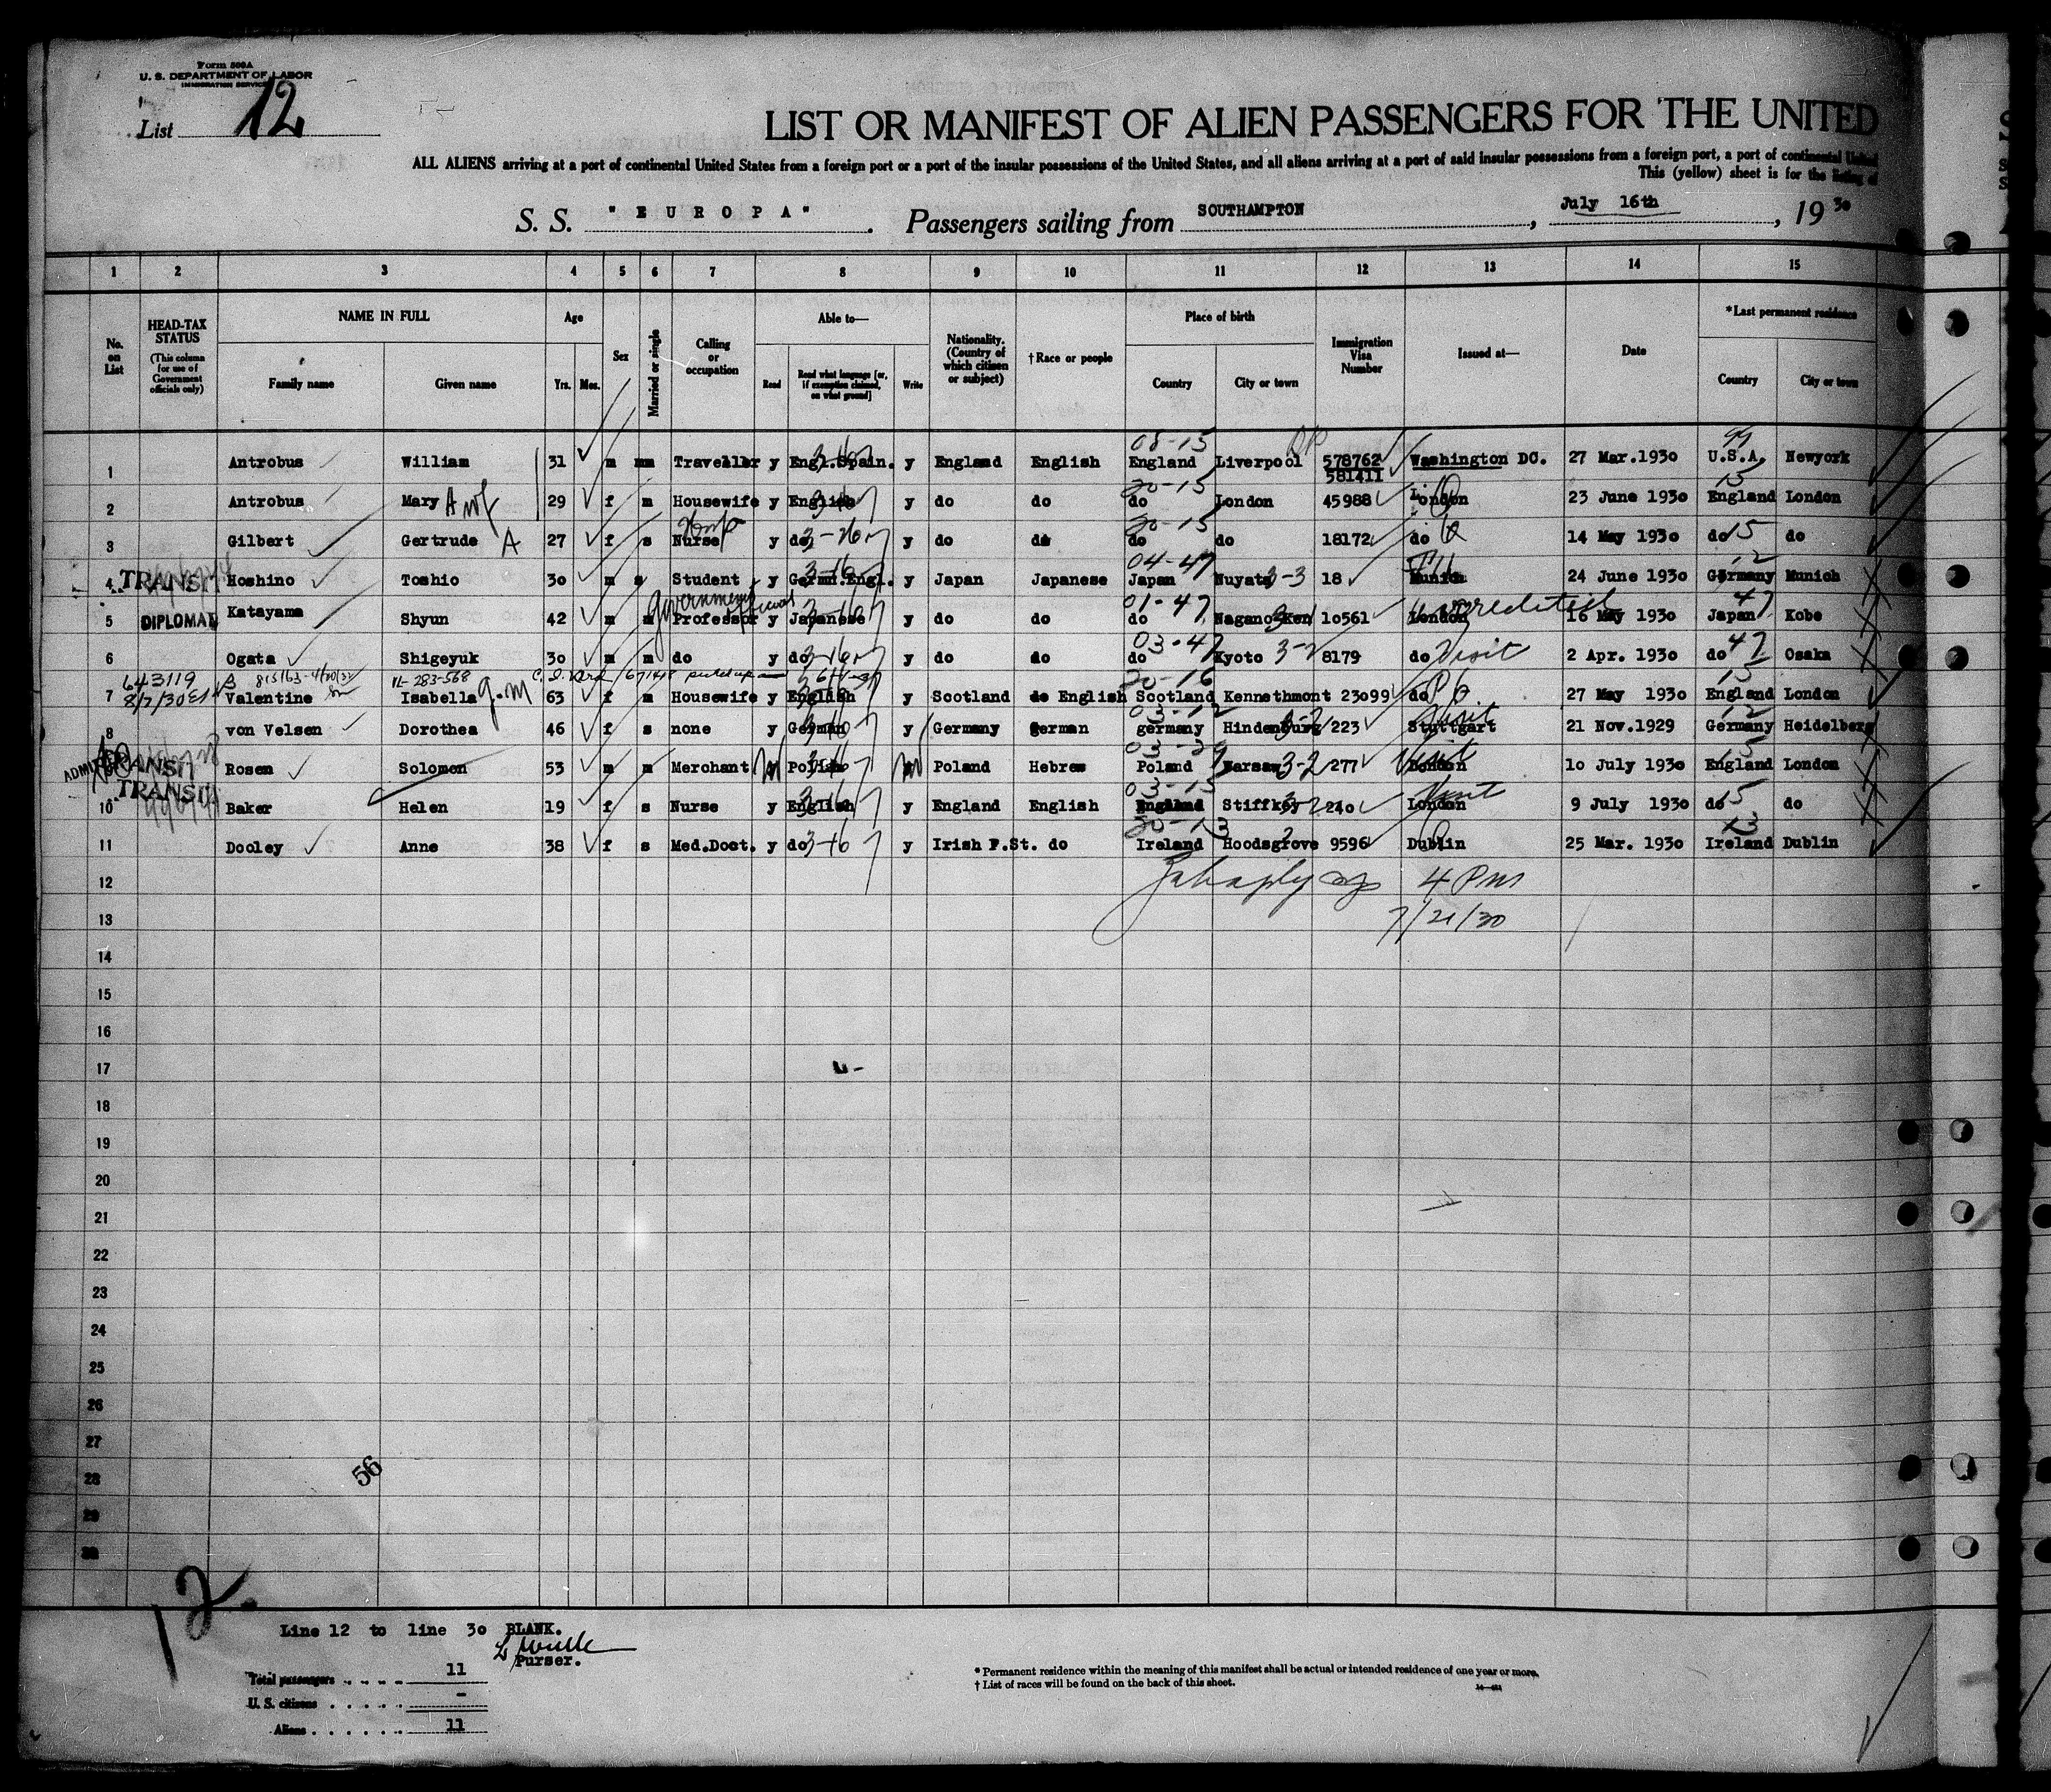 Form 500A
U. S. DEPARTMENT OF LABOR
IMMIGRATION SERVICE
List 12
LIST OR MANIFEST OF ALIEN PASSENGERS FOR THE UNITED
ALL ALIENS arriving at a port of continental United States from a foreign port or a port of the insular possessions of the United States, and all aliens arriving at a port of said insular possessions from a foreign port, a port of continental United
This (yellow) sheet is for the listing of
S. S. "EUROPA". Passengers sailing from SOUTHAMPTON, July 16th, 1930
1 2 3 4 5 6 7 8 9 10 11 12 13 14 15
No. on List
HEAD-TAX STATUS (This column for use of Government officials only)
NAME IN FULL
Family name
Given name
Age
Yrs. Mos.
Sex
Married or single
Calling or occupation
Able to—
Read
Read what language [or, if exemption claimed, on what ground]
Write
Nationality. (Country of which citizen or subject)
†Race or people
Place of birth
Country
City or town
Immigration Visa Number
Issued at—
Date
*Last permanent residence
Country
City or town
08-15 99
1 Antrobus William 31 m m Traveller y Engl.Spain. y England English England Liverpool 578762 Washington DC. 27 Mar.1930 U.S.A. Newyork
581411
20-15 15
2 Antrobus Mary 29 f m Housewife y English y do do do London 45988 London 23 June 1930 England London
20-15
3 Gilbert Gertrude A 27 f s Nurse y do y do do do do 18172 do 14 May 1930 do 15 do
04-47 12
4 TRANSIT Hoshino Toshio 30 m s Student y Germ.Engl. y Japan Japanese Japan Nuyata 3-3 18 Munich 24 June 1930 Germany Munich
Government official 01-47 accredited 47
5 DIPLOMAT Katayama Shyun 42 m m Professor y Japanese y do do do Nagano Ken 10561 London 16 May 1930 Japan Kobe
03-47
6 Ogata Shigeyuk 30 m m do y do y do do do Kyoto 8179 do Visit 2 Apr. 1930 do 47 Osaka
643119 20-16 15
7 8/7/30 Valentine Isabella 63 f m Housewife y English y Scotland do English Scotland Kennethmont 23099 do 27 May 1930 England London
03-12 Visit 12
8 von Velsen Dorothea 46 f s none y German y Germany German germany Hindenburg 223 Stuttgart 21 Nov.1929 Germany Heidelberg
ADMITTED TRANSIT Rosen Solomon 53 m m Merchant Polish Poland Hebrew Poland Warsaw 3-2 277 London 10 July 1930 England London
TRANSIT 03-15 Visit
10 Baker Helen 19 f s Nurse y English y England English England Stiffkey 240 London 9 July 1930 do 15 do
20-13
11 Dooley Anne 38 f s Med.Doct. y do y Irish F.St. do Ireland Hoodsgrove 9596 Dublin 25 Mar. 1930 Ireland Dublin
12 4 PM
13 7/21/30
14
15
16
17
18
19
20
21
22
23
24
25
26
27
28
29
30
56
12.
Line 12 to line 30 BLANK.
Purser.
Total passengers 11
U. S. citizens -
Aliens 11
* Permanent residence within the meaning of this manifest shall be actual or intended residence of one year or more.
† List of races will be found on the back of this sheet.